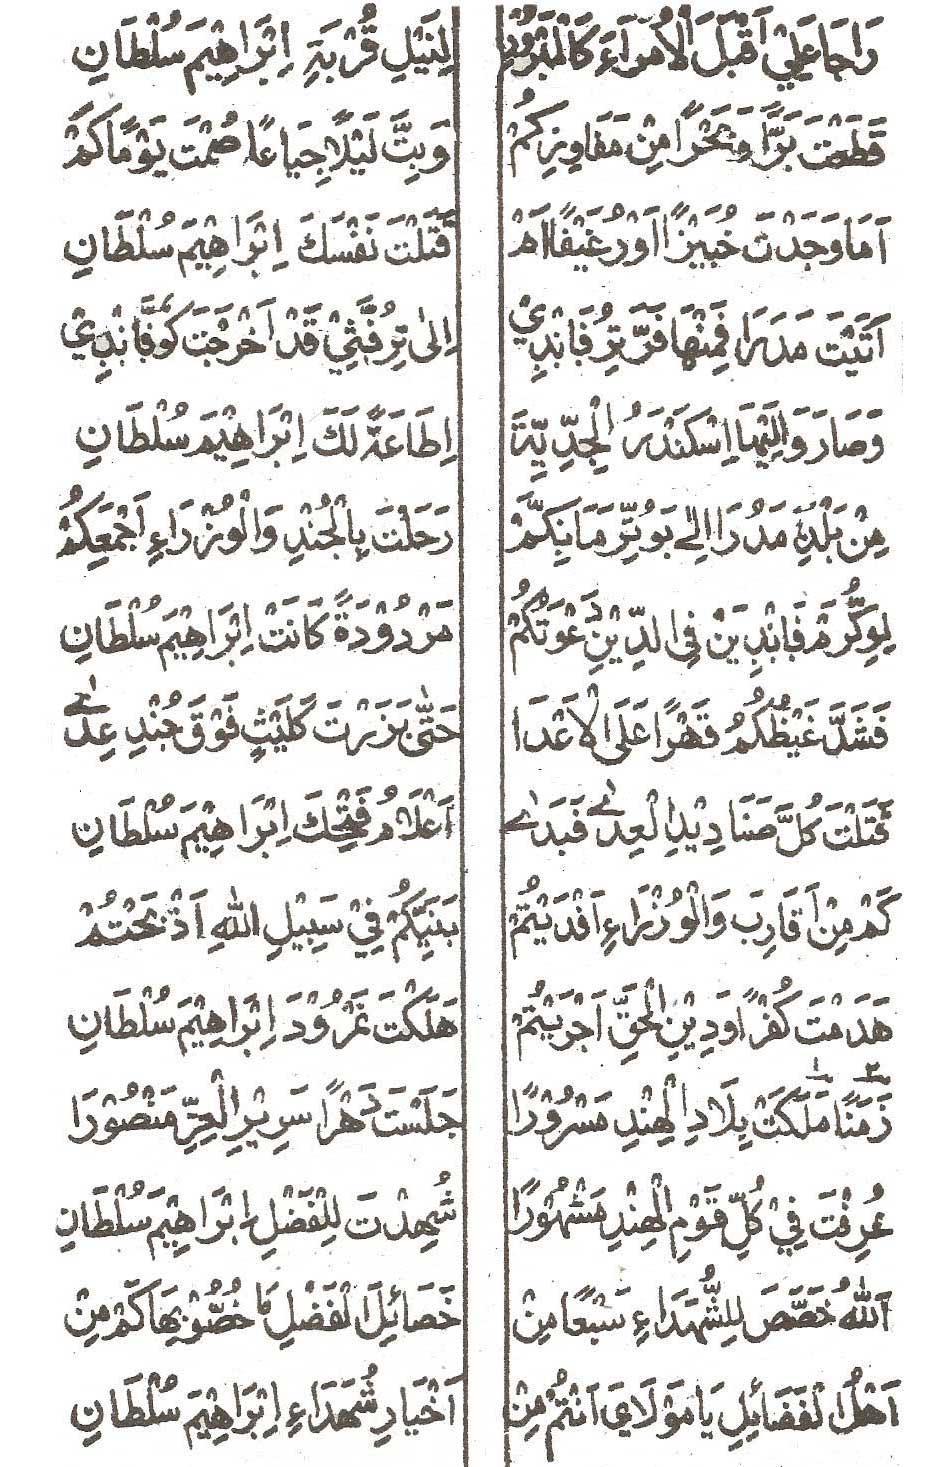 رَاجَا عَلِيْ اَقْبَلَ الْاُمَرَاءَ كَالْمَبْرُوْرِ لِنَيْلِ قُرْبَةِ اِبْرَاهِيْمَ سُلْطَانِ
قَطَعْتَ بَرًّا وَبَحْرًا مِنْ مَفَاوِزِكُمْ وَبِتَّ لَيْلًا جِيَاعًا صُمْتَ يَوْمًا كَمْ
اَمَا وَجَدْتَ خُبَيْزًا اَوْ رُغَيْفًا اَمْ قَتَلْتَ نَفْسَكَ اِبْرَاهِيْمَ سُلْطَانِ
اَتَيْتَ مَدَرَا فَمِنْهَا فَرَّ تِرُفَانْدِيْ اِلٰى تِرُفَّثِيْ قَدْ اَخْرَجْتَ كُوْفَانْدِيْ
وَصَارَ وَالِيْهَا اِسْكَنْدَرُ الْجِدِّيَّةَ اِطَاعَةً لَكَ اِبْرَاهِيْمَ سُلْطَانِ
مِنْ بَلْدَةِ مَدُرَا اِلٰى بَوُتِّرَمَانِكُمْ رَحَلْتَ بِالْجُنْدِ وَالْوُزَرَاءِ اَجْمَعِكُمْ
لِوِكْرَمَ فَانْدِيَنْ فِي الدِّيْنِ دَعْوَتُكُمْ مَرْدُوْدَةً كَانَتْ اِبْرَاهِيْمَ سُلْطَانِ
فَشَدَّ غَيْظُكُمُ قَهْرًا عَلَى الْاَعْدَا حَتّٰى بَزَرْتَ كَلَيْثٍ فَوْقَ جُنْدِ عِدٰى
قَتَلْتَ كُلَّ صَنَادِيْدِ الْعِدٰى فَبَدٰى اَعْلَامُ فَتْحِكَ اِبْرَاهِيْمَ سُلْطَانِ
كَمْ مِنْ اَقَارِبَ وَالْوُزَرَاءِ اَفْدَيْتُمْ بَنِيَّكُمْ فِيْ سَبِيْلِ اللهِ اَذْبَحْتُمْ
هَدَمْتَ كُفْرًا وَدِيْنِ الْحَقِّ اَجْرَيْتُمْ هَلَكْتَ نَمْرُوْدَ اِبْرَاهِيْمَ سُلْطَانِ
زَمَنًا مَلَكْتَ بِلَادِ الْهِنْدِ مَسْرُوْرًا جَلَسْتَ دَهْرًا سَرِيْرِ الْعِزِّ مَنْصُوْرَا
عُرِفْتَ فِيْ كُلِّ قَوْمِ الْهِنْدِ مَشْهُوْرًا شُهِدْتَ لِلْفَضْلِ اِبْرَاهِيْمَ سُلْطَانِ
اَللهُ خَصَّصَ لِلشُّهَدَاءِ سَبْعًا مِنْ خَصَائِلِ الْفَضْلِ مَا خُصُّوْا بِهَا كَمْ مِنْ
اَهْلُ الْفَضَائِلِ يَا مَوْلَايَ اَنْتُمْ مِنْ اَخْيَارِ شُهَدَاءِ اِبْرَاهِيْمَ سُلْطَانِ